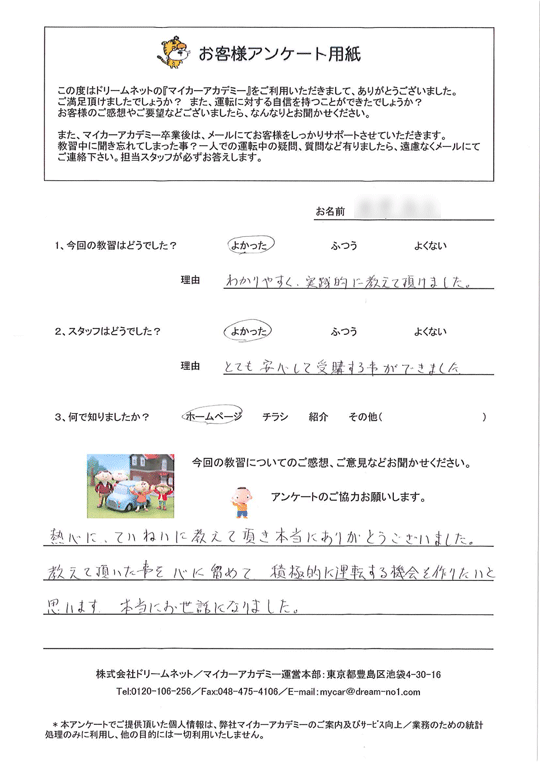 お客様アンケート用紙
この度はドリームネットの『マイカーアカデミー』をご利用いただきまして、ありがとうございました。
ご満足頂けましたでしょうか？ また、運転に対する自信を持つことができたでしょうか？
お客様のご感想やご要望などございましたら、なんなりとお聞かせください。
また、マイカーアカデミー卒業後は、メールにてお客様をしっかりサポートさせていただきます。
教習中に聞き忘れてしまった事？一人での運転中の疑問、質問など有りましたら、遠慮なくメールにて
ご連絡下さい。担当スタッフが必ずお答えします。
お名前
1、今回の教習はどうでした？ よかった ふつう よくない
理由 わかりやすく、実践的に教えて頂けました。
2、スタッフはどうでした？ よかった ふつう よくない
理由 とても安心して受講する事ができました
3、何で知りましたか？ ホームページ チラシ 紹介 その他( )
今回の教習についてのご感想、ご意見などお聞かせください。
アンケートのご協力お願いします。
熱心に、ていねいに教えて頂き本当にありがとうございました。
教えて頂いた事を心に留めて 積極的に運転する機会を作りたいと
思います 本当にお世話になりました。
株式会社ドリームネット／マイカーアカデミー運営本部：東京都豊島区池袋4-30-16
Tel:0120-106-256／Fax:048-475-4106／E-mail:mycar@dream-no1.com
＊本アンケートでご提供頂いた個人情報は、弊社マイカーアカデミーのご案内及びサービス向上／業務のための統計
処理のみに利用し、他の目的には一切利用いたしません。